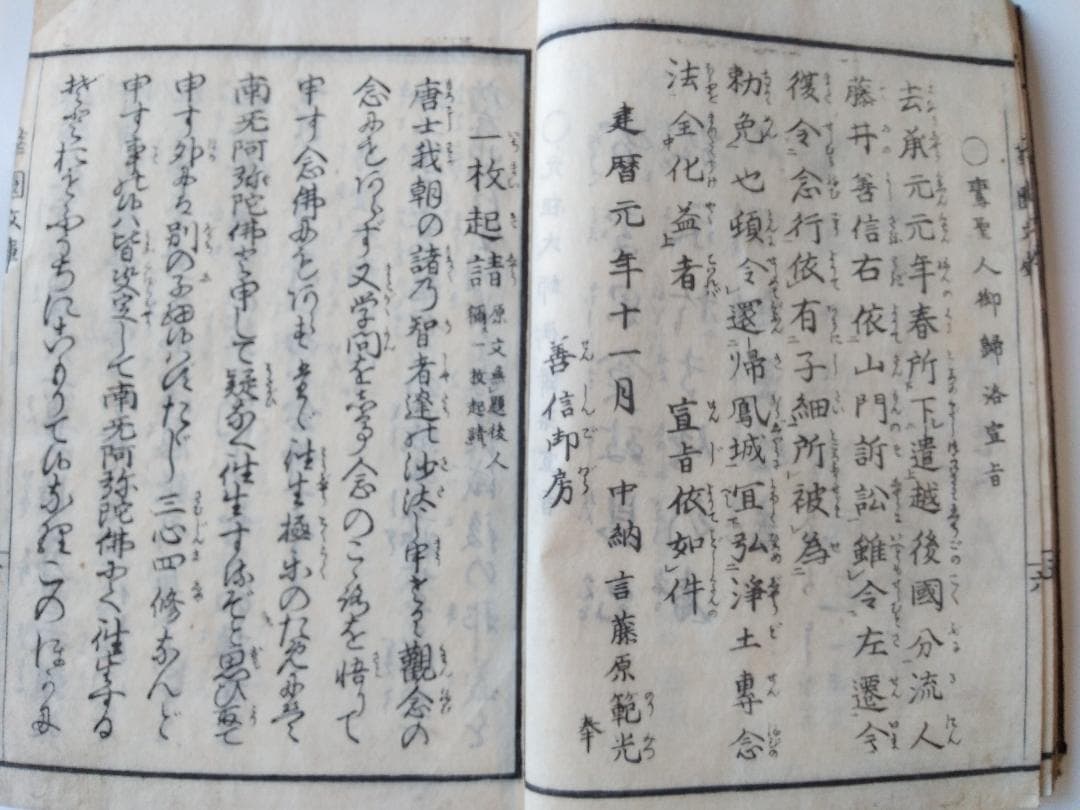 ○鸞聖人御歸洛宣旨
去承元元年春所下遣越後國分流人
藤井善信右依山門訴訟雖令左遷今
復令念行依有子細所被為
勅免也頓令還歸鳳城宜弘淨土專念
法全化益者 宣旨依如件
建暦元年十一月 中納言藤原範光 奉
善信御房
一枚起請 原文無題後人稱一枚起請
唐土我朝の諸乃智者達の沙汰し申さるゝ觀念の
念にもあらず又学問をして念のこゝろを悟りて
申す念佛にもあらずたゞ往生極楽のためには
南無阿弥陀佛と申して疑なく往生するぞと思ひ取て
申す外には別の子細候はずたゞし三心四修なんど
申す事の候ハ皆决定して南無阿弥陀佛にて往生する
ぞとおもふうちにこもりて候なり このほかに